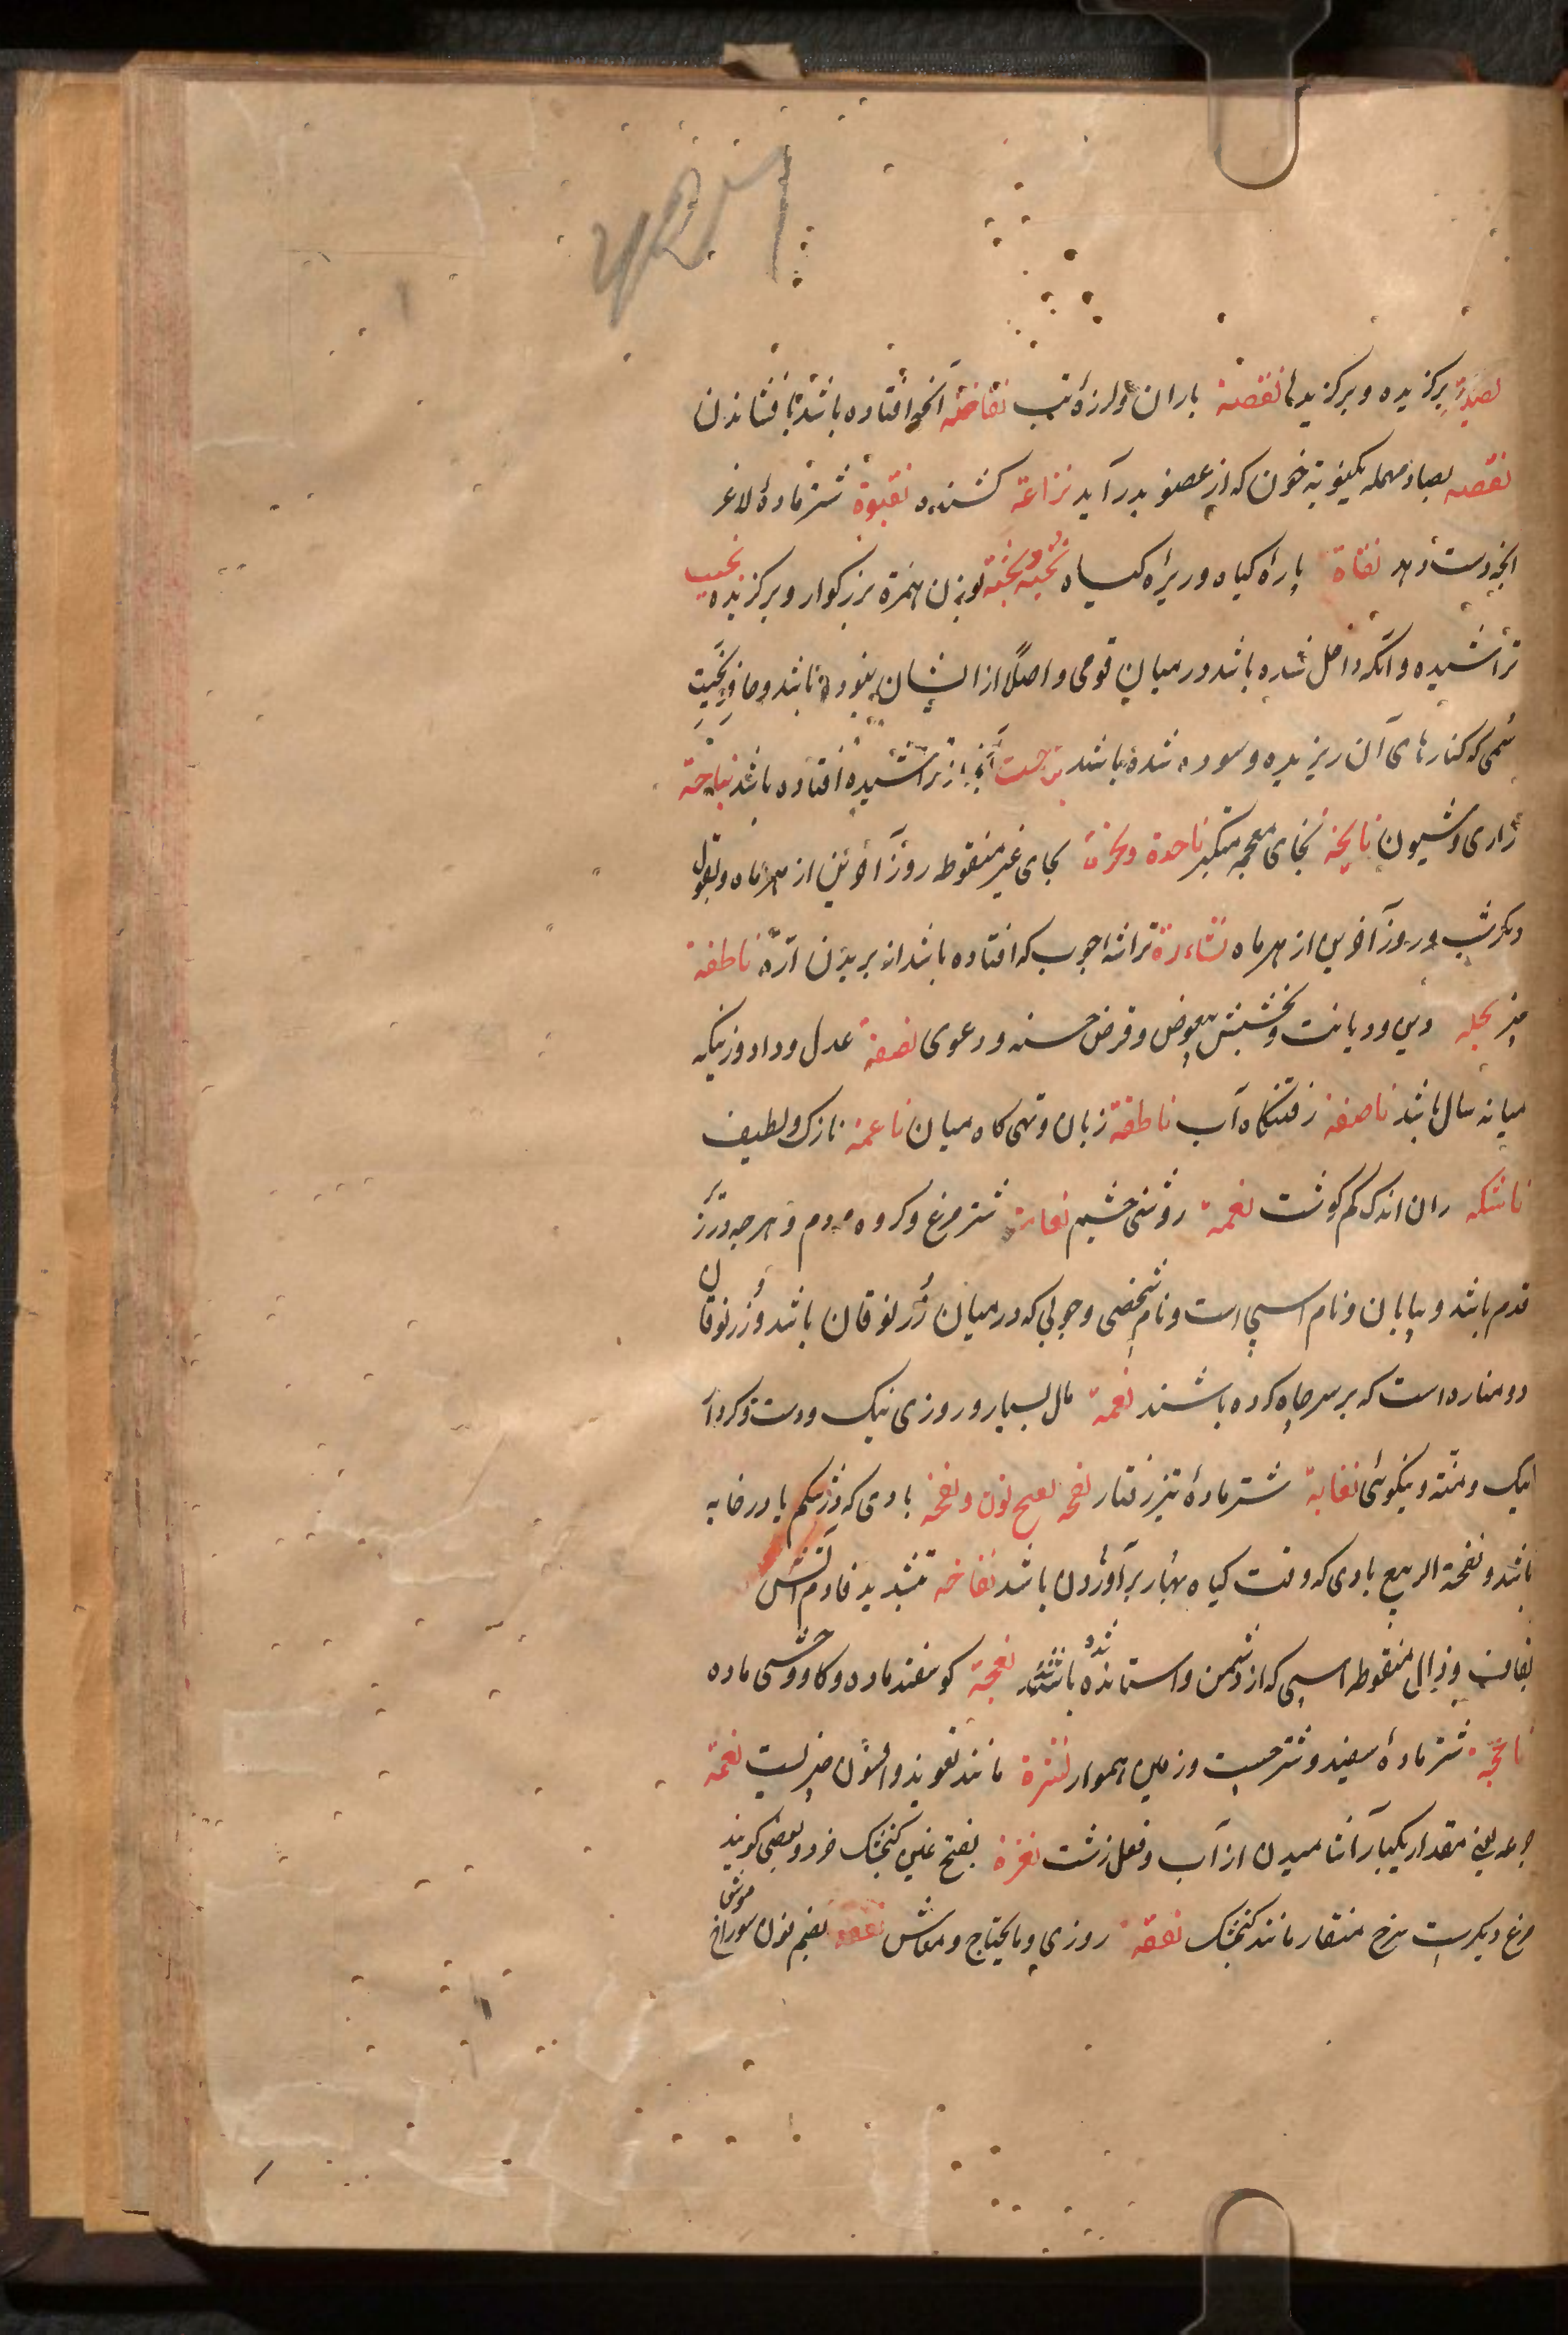 نصیة برکزیده و برکزیدها نفضة باران و لرزهٔ تب نفاضة آنچه افتاده باشد بافشاندن
نفصه بصاد مهمله یکنوبته خون که از عضو بدر آید نزاعة کشنده نقبوة شتر مادهٔ لاغر
انچه دست دهد نفاة پارهٔ کیاه و ریزهٔ کیاه نخبة و نخبة بوزن همزة بزرکوار و برکزیده نحیب
تراشیده و انکه داخل شده باشد در میان قومی و اصلاً از ایشان نبوده باشد و حافر نحیت
سمی که کنارهای آن ریزیده و سوده شده باشد آنچه از تراشیده افتاده باشد نیاحة
زاری و شیون نایخة بخای معجمه متکبر ناحدة و نحرة بحای غیر منقوط روز آخرین از هر ماه و بقول
دیکر شب و روز آخرین از هر ماه نشاءرة تراشهٔ چوب که افتاده باشد از بریدن ارّه ناطفة
نحله دین و دیانت و بخشش بیعوض و قرض حسنه و دعوی نصفة عدل و داد و زنیکه
میانه سال باشد ناصفة رفتنکاه آب ناطقة زبان و تهی کاه میان ناعمة نازک و لطیف
ناشله ران اندک کم کوشت نعمة روشنی چشم نعامة شتر مرغ و کروه مردم و هرچه در زیر
قدم باشد و بیابان و نام اسبی است و نام شخصی و چوبی که در میان زرنوقان باشد و زرنوقان
دو مناره است که بر سر چاه کرده باشند نعمة مال بسیار و روزی نیک و دست و کردار
نیک و منّه و نیکوئی نغابة شتر مادهٔ تیز رفتار نفحه بفتح نون و نفخة بادی که در شکم یا در خایه
باشد و نفحة الربیع بادی که وقت کیاه بهار برآوردن باشد نفاخه بتشدید فا دم آتش
بقاف و ذال منقوطه اسبی که از دشمن واستانده شده باشد نعجة کوسفند ماده و کاو وحشی ماده
ناعجة شتر مادهٔ سفید و شتر چست و زمین هموار نشرة مانند تعویذ و افسون چیزیست نغمة
جرعه یعنی مقدار یکبار آشامیدن از آب و فعل زشت نغرة بفتح غین کنجشک خرد و بعضی کویند
مرغ دیکرست سرخ منقار مانند کنجشک نفقة روزی و مایحتاج و معاش نفقه بضم نون سوراخ موش